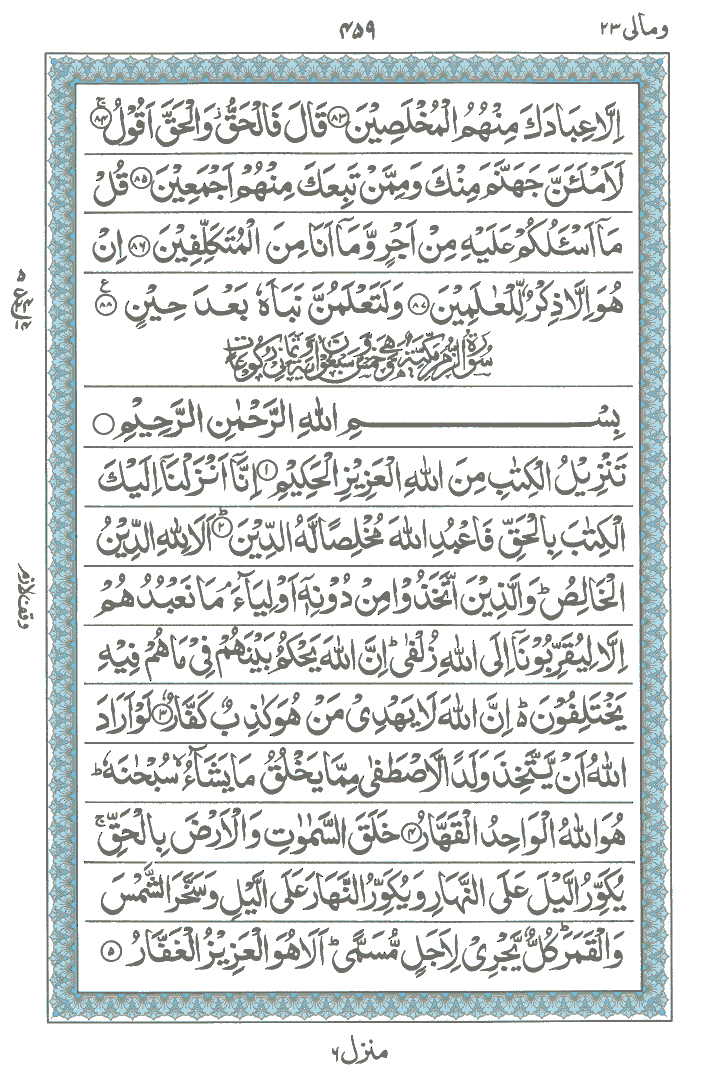 ومالی ۲۳
۴۵۹
اِلَّا عِبَادَكَ مِنْهُمُ الْمُخْلَصِيْنَ ﴿۸۳﴾ قَالَ فَالْحَقُّ ؗ وَالْحَقَّ اَقُوْلُ ۚ ﴿۸۴﴾
لَاَمْلَـَٔنَّ جَهَنَّمَ مِنْكَ وَمِمَّنْ تَبِعَكَ مِنْهُمْ اَجْمَعِيْنَ ﴿۸۵﴾ قُلْ
مَاۤ اَسْـَٔلُكُمْ عَلَيْهِ مِنْ اَجْرٍ وَّمَاۤ اَنَا مِنَ الْمُتَكَلِّفِيْنَ ﴿۸۶﴾ اِنْ
هُوَ اِلَّا ذِكْرٌ لِّلْعٰلَمِيْنَ ﴿۸۷﴾ وَلَتَعْلَمُنَّ نَبَاَهٗ بَعْدَ حِيْنٍ ﴿۸۸﴾ ع
سُوْرَةُ الزُّمَرِ مَكِّيَّةٌ وَّهِيَ خَمْسٌ وَّسَبْعُوْنَ اٰيَةً وَّثَمَانِيْ رُكُوْعَاتٍ
بِسْمِ اللّٰهِ الرَّحْمٰنِ الرَّحِيْمِ
تَنْزِيْلُ الْكِتٰبِ مِنَ اللّٰهِ الْعَزِيْزِ الْحَكِيْمِ ﴿۱﴾ اِنَّاۤ اَنْزَلْنَاۤ اِلَيْكَ
الْكِتٰبَ بِالْحَقِّ فَاعْبُدِ اللّٰهَ مُخْلِصًا لَّهُ الدِّيْنَ ؕ ﴿۲﴾ اَلَا لِلّٰهِ الدِّيْنُ
الْخَالِصُ ؕ وَالَّذِيْنَ اتَّخَذُوْا مِنْ دُوْنِهٖۤ اَوْلِيَآءَ ۘ مَا نَعْبُدُهُمْ
اِلَّا لِيُقَرِّبُوْنَاۤ اِلَى اللّٰهِ زُلْفٰى ؕ اِنَّ اللّٰهَ يَحْكُمُ بَيْنَهُمْ فِيْ مَا هُمْ فِيْهِ
يَخْتَلِفُوْنَ ؕ اِنَّ اللّٰهَ لَا يَهْدِيْ مَنْ هُوَ كٰذِبٌ كَفَّارٌ ﴿۳﴾ لَوْ اَرَادَ
اللّٰهُ اَنْ يَّتَّخِذَ وَلَدًا لَّاصْطَفٰى مِمَّا يَخْلُقُ مَا يَشَآءُ ۙ سُبْحٰنَهٗ ؕ
هُوَ اللّٰهُ الْوَاحِدُ الْقَهَّارُ ﴿۴﴾ خَلَقَ السَّمٰوٰتِ وَالْاَرْضَ بِالْحَقِّ ۚ
يُكَوِّرُ الَّيْلَ عَلَى النَّهَارِ وَيُكَوِّرُ النَّهَارَ عَلَى الَّيْلِ وَسَخَّرَ الشَّمْسَ
وَالْقَمَرَ ؕ كُلٌّ يَّجْرِيْ لِاَجَلٍ مُّسَمًّى ؕ اَلَا هُوَ الْعَزِيْزُ الْغَفَّارُ ﴿۵﴾
وقف لازم
منزل ۶